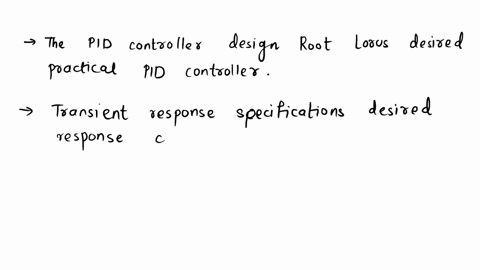 → The PID controller design Root Lorus desired
practical PID controller.
→ Transient response specifications desired
response c